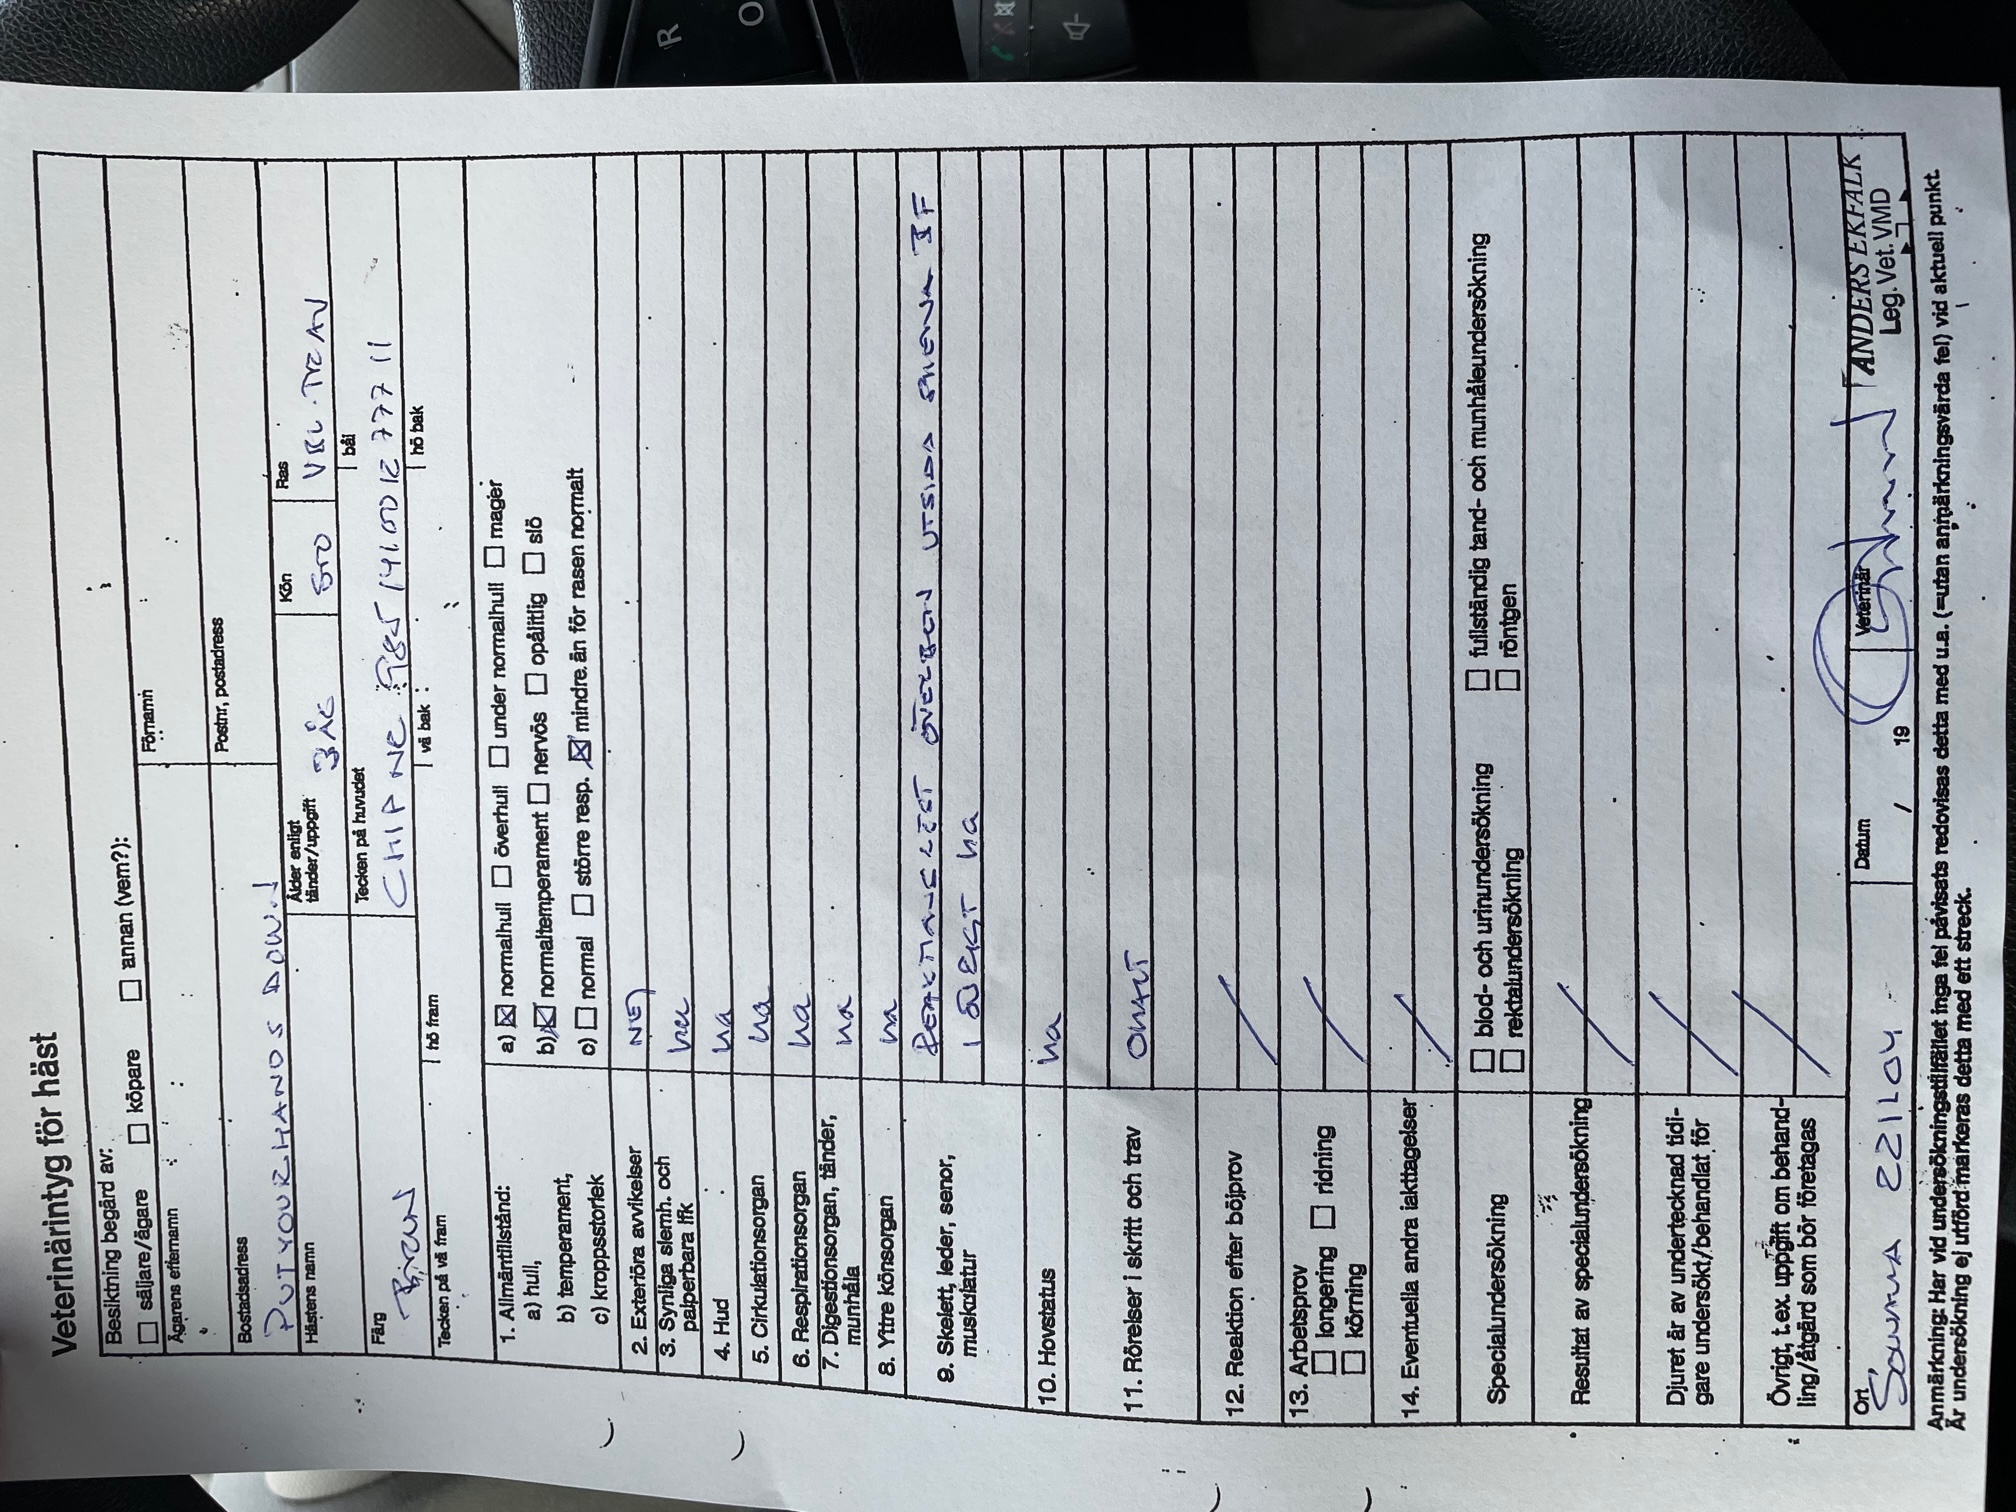 R
O
Veterinärintyg för häst
Besiktning begärd av:
säljare/ägare köpare annan (vem?):
Ägarens efternamn Förnamn
Bostadsadress Postnr, postadress
PUTYOURHANDS DOWN
Hästens namn Ålder enligt tänder/uppgift 3 ÅR Kön STO Ras VBL.TRAV
Färg BRUN Tecken på huvudet bål
CHIP NR 985 141 00 12 777 11
Tecken på vä fram hö fram vä bak hö bak
1. Allmäntillstånd:
a) hull, a) normalhull överhull under normalhull mager
b) temperament, b) normaltemperament nervös opålitlig slö
c) kroppsstorlek c) normal större resp. mindre än för rasen normalt
2. Exteriöra avvikelser NEJ
3. Synliga slemh. och palperbara lfk ua
4. Hud ua
5. Cirkulationsorgan ua
6. Respirationsorgan ua
7. Digestionsorgan, tänder, munhåla ua
8. Yttre könsorgan ua
9. Skelett, leder, senor, muskulatur REAKTIONSLÖST ÖVERBEN UTSIDA SKENA
ÖVRIGT ua
10. Hovstatus ua
11. Rörelser i skritt och trav OHALT
12. Reaktion efter böjprov
13. Arbetsprov
longering ridning
körning
14. Eventuella andra iakttagelser
Specialundersökning
blod- och urinundersökning fullständig tand- och munhåleundersökning
rektalundersökning röntgen
Resultat av specialundersökning
Djuret är av undertecknad tidi-
gare undersökt/behandlat för
Övrigt, t.ex. uppgift om behand-
ling/åtgärd som bör företagas
Ort Datum Veterinär
221104 , 19
ANDERS EKFALK
Leg. Vet. VMD
Anmärkning: Har vid undersökningstillfället inga fel påvisats redovisas detta med u.a. (=utan anmärkningsvärda fel) vid aktuell punkt.
Är undersökning ej utförd markeras detta med ett streck.